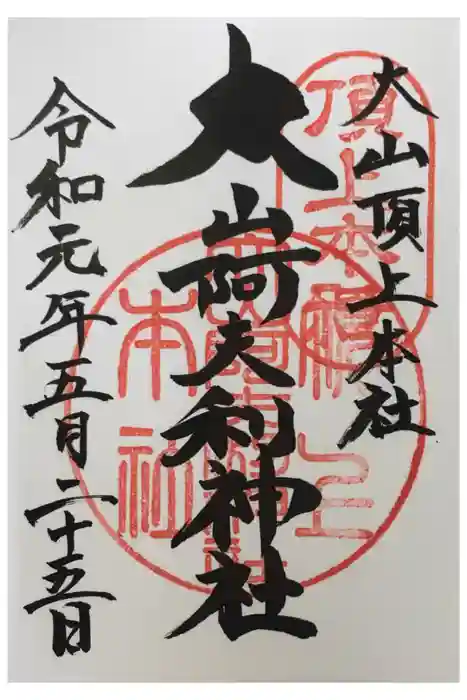 大山頂上本社
大山阿夫利神社
令和元年五月二十五日
頂上本社
本社